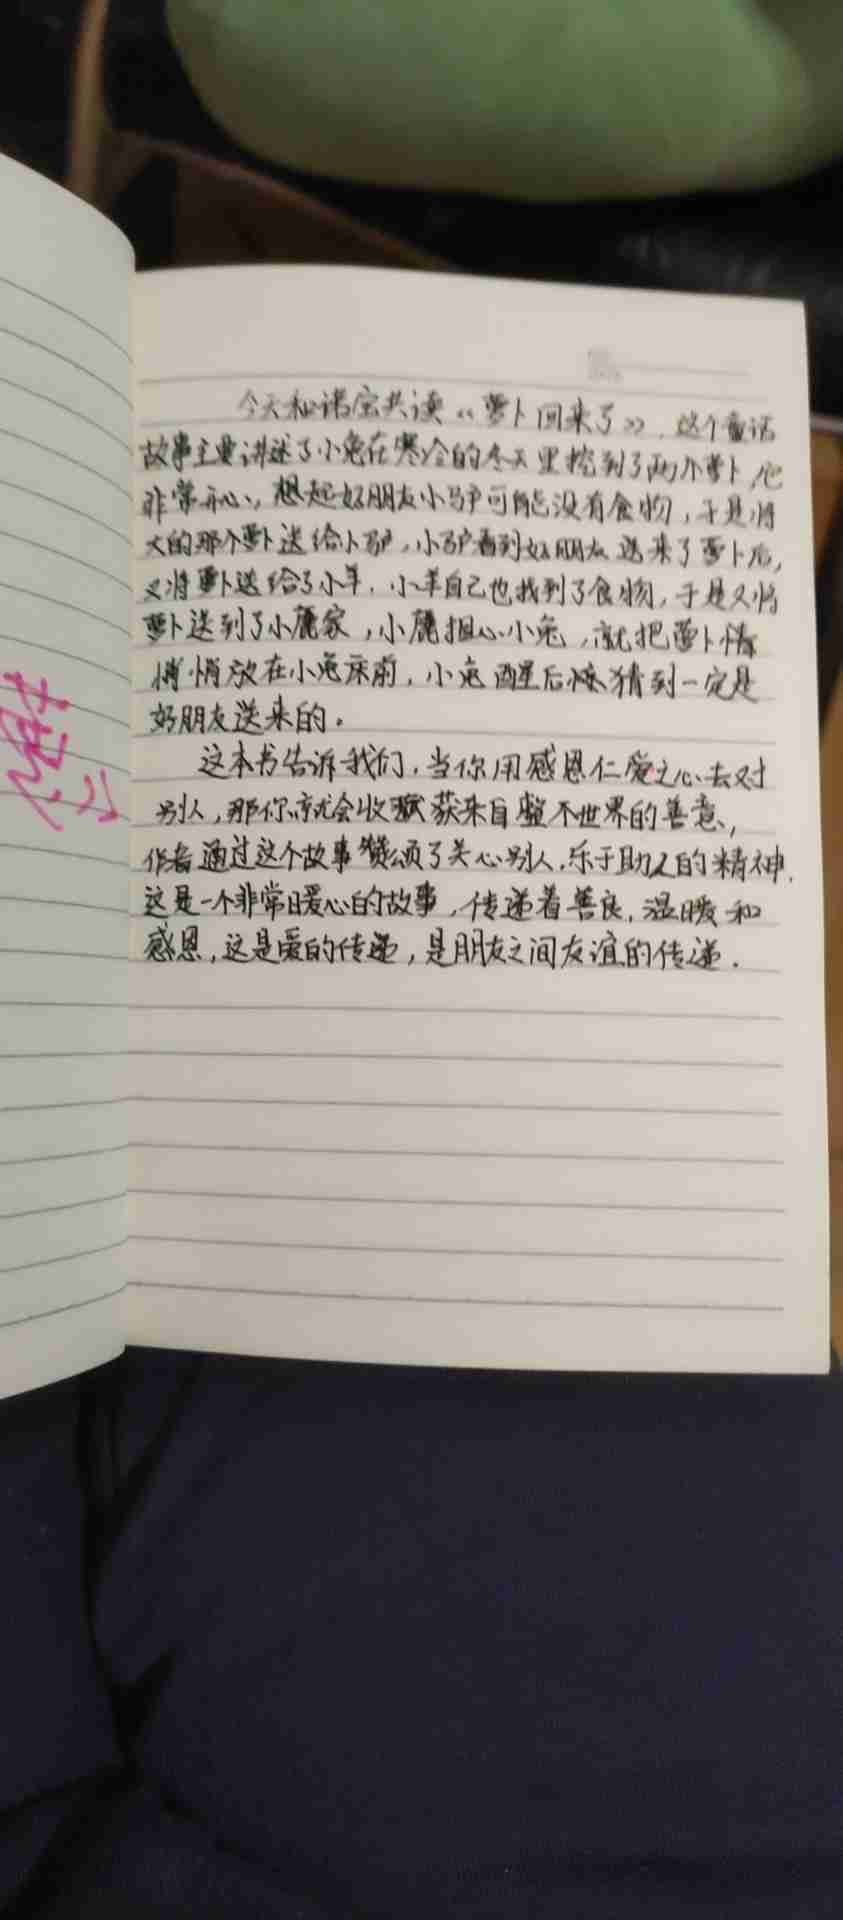 今天和诺宝共读《萝卜回来了》，这个童话
故事主要讲述了小兔在寒冷的冬天里挖到了两个萝卜，他
非常开心，想起好朋友小驴可能没有食物，于是将
大的那个萝卜送给小驴，小驴看到好朋友送来了萝卜后，
又将萝卜送给了小羊，小羊自己也找到了食物，于是又将
萝卜送到了小鹿家，小鹿担心小兔，就把萝卜悄
悄放在小兔床前，小兔醒后猜到一定是
好朋友送来的。
这本书告诉我们，当你用感恩仁爱之心去对
别人，那你就会收获来自整个世界的善意，
作者通过这个故事赞颂了关心别人，乐于助人的精神，
这是一个非常暖心的故事，传递着善良，温暖和
感恩，这是爱的传递，是朋友之间友谊的传递．